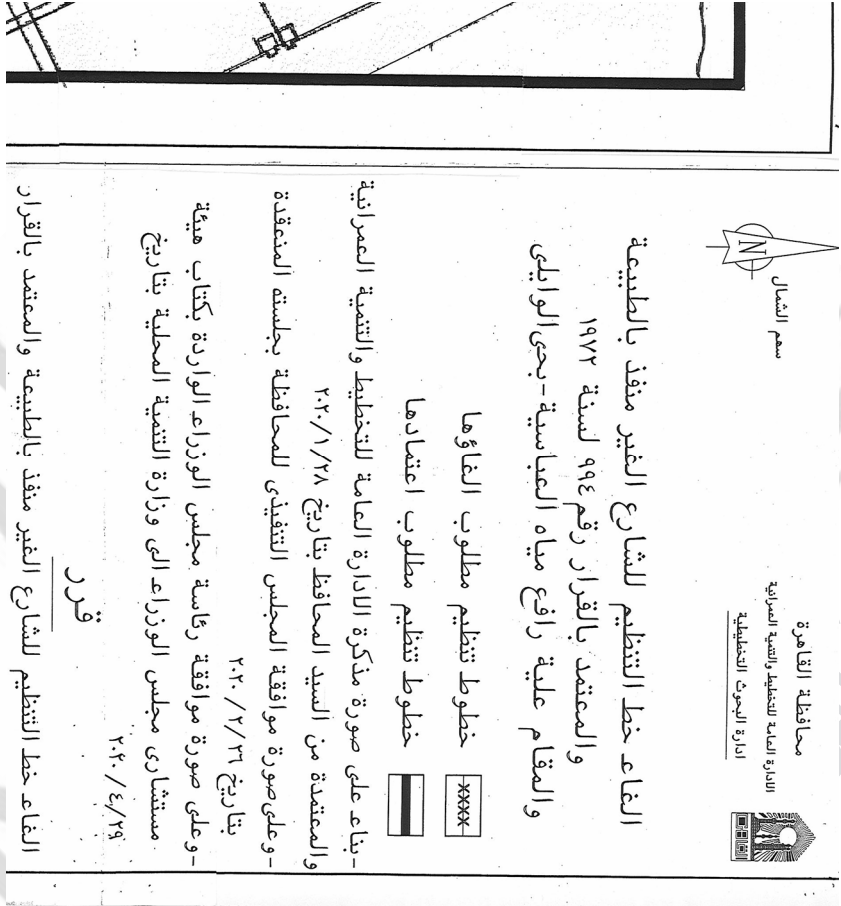 محافظة القاهرة
الادارة العامة للتخطيط والتنمية العمرانية
ادارة البحوث التخطيطية
سهم الشمال
N
الغاء خط التنظيم للشارع الغير منفذ بالطبيعة
والمعتمد بالقرار رقم ٩٩٤ لسنة ١٩٧٢
والمقام علية رافع مياه العباسية - بحى الوايلى
xxxx خطوط تنظيم مطلوب الغاؤها
خطوط تنظيم مطلوب اعتمادها
- بناء على صورة مذكرة الادارة العامة للتخطيط والتنمية العمرانية
والمعتمدة من السيد المحافظ بتاريخ ٢٠٢٠/١/٢٨
- وعلى صورة موافقة المجلس التنفيذى للمحافظة بجلسته المنعقدة
بتاريخ ٢٠٢٠/٢/٢٦
- وعلى صورة موافقة رئاسة مجلس الوزراء الواردة بكتاب هيئة
مستشارى مجلس الوزراء الى وزارة التنمية المحلية بتاريخ
٢٠٢٠/٤/٢٩
قرر
الغاء خط التنظيم للشارع الغير منفذ بالطبيعة والمعتمد بالقرار